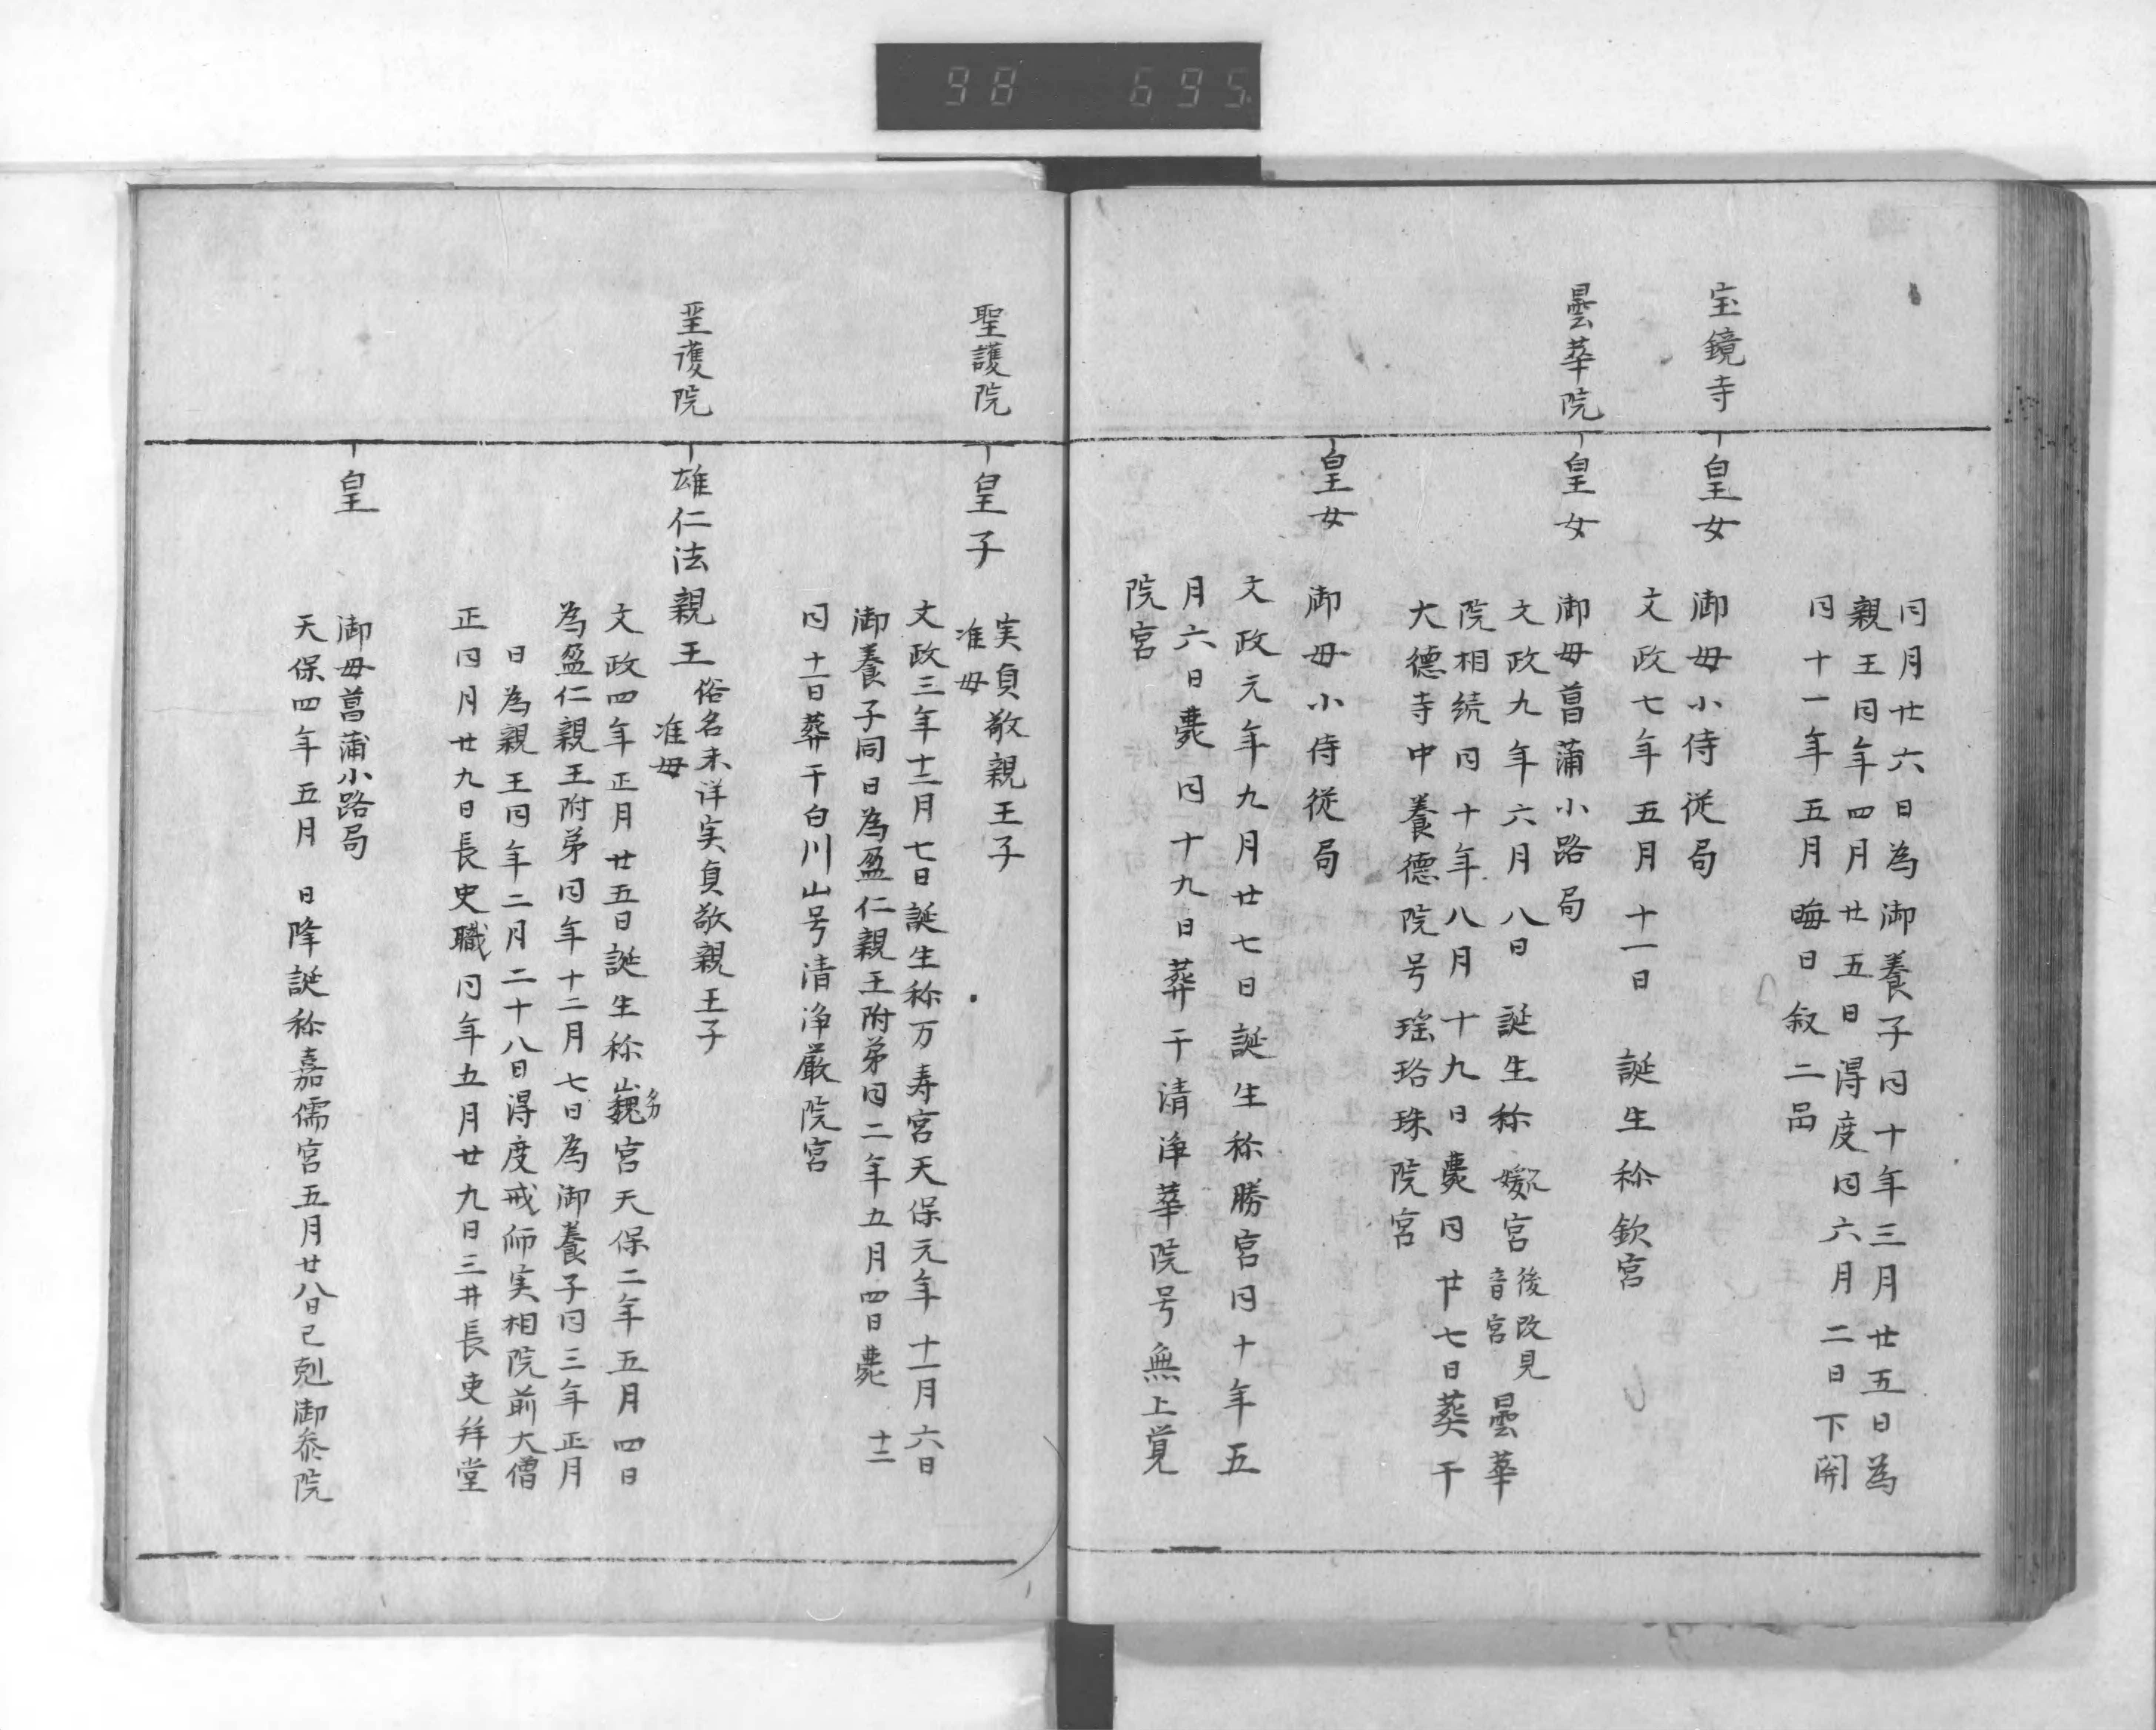 98 695
同月廿六日為御養子同十年三月廿五日為
親王同年四月廿五日得度同六月二日下開
同十一年五月晦日叙二品
宝鏡寺
皇女
御母小侍従局
文政七年五月十一日 誕生称欽宮
曇華院
皇女
御母菖蒲小路局
文政九年六月八日 誕生称媛宮後改見音宮曇華
院相続同十年八月十九日薨同廿七日葬于
大徳寺中養徳院号瑤珞珠院宮
皇女
御母小侍従局
文政元年九月廿七日誕生称勝宮同十年五
月六日薨同十九日葬于清浄華院号無上覚
院宮
聖護院
皇子
実貞敬親王子
准母
文政三年十二月七日誕生称万寿宮天保元年十一月六日
御養子同日為盈仁親王附弟同二年五月四日薨 十二
同十一日葬于白川山号清浄厳院宮
聖護院
雄仁法親王
俗名未详実貞敬親王子
准母
文政四年正月廿五日誕生称嶷宮天保二年五月四日
為盈仁親王附弟同年十二月七日為御養子同三年正月
日為親王同年二月二十八日得度戒师実相院前大僧
正同月廿九日長史職同年五月廿九日三井長吏拜堂
皇
御母菖蒲小路局
天保四年五月 日降誕称嘉儒宮五月廿八日已剋御参院